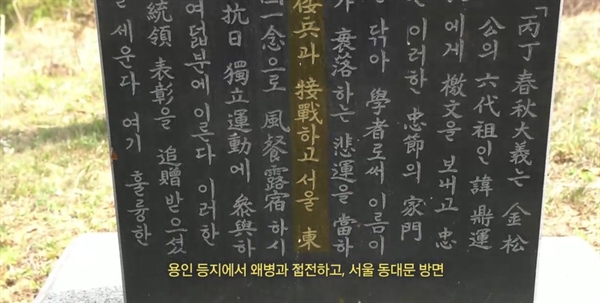 「丙丁 春秋大義는 金松
公의 六代祖인 諱鼎運
에게 檄文을 보내고 忠
이러한 忠節의 家門
닦아 學者로써 이름이
衰落하는 悲運을 當하
倭兵과 接戰하고 서울 東
一念으로 風餐露宿 하시
抗日 獨立運動에 參與하
여덟분에 이른다 이러한
統領 表彰을 追贈 받으셨
세운다 여기 훌륭한
용인 등지에서 왜병과 접전하고, 서울 동대문 방면